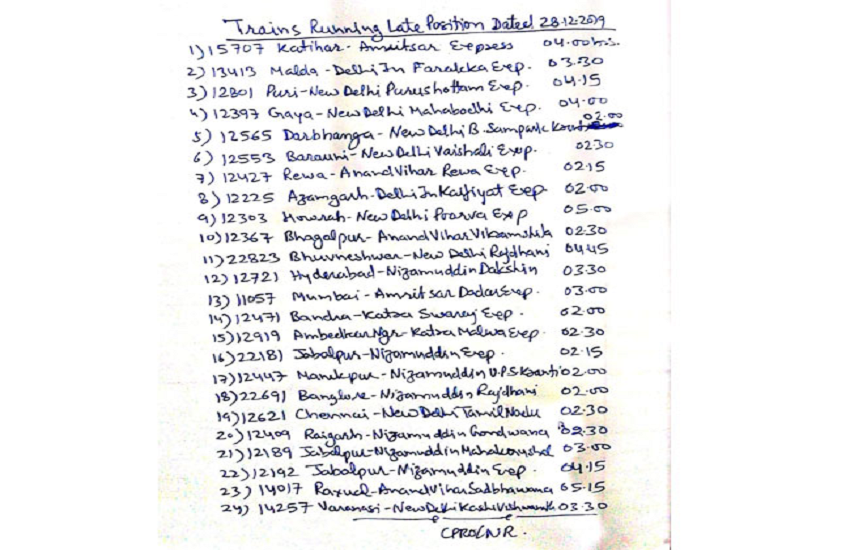 Trains Running Late Position Dated 28.12.2019
1) 15707 Katihar - Amritsar Express 04.00hrs.
2) 13413 Malda - Delhi Jn Farakka Exp. 03.30
3) 12801 Puri - New Delhi Purushottam Exp. 04.15
4) 12397 Gaya - New Delhi Mahabodhi Exp. 04.00
5) 12565 Darbhanga - New Delhi B. Sampark 02.00
6) 12553 Barauni - New Delhi Vaishali Exp. 0230
7) 12427 Rewa - Anand Vihar Rewa Exp. 02.15
8) 12225 Azamgarh - Delhi Jn Kaifiyat Exp 02.00
9) 12303 Howrah - New Delhi Poorva Exp 05.00
10) 12367 Bhagalpur - Anand Vihar Vikramshila 02.30
11) 22823 Bhuvneshwar - New Delhi Rajdhani 04.45
12) 12721 Hyderabad - Nizamuddin Dakshin 03.30
13) 11057 Mumbai - Amritsar Dadar Exp. 03.00
14) 12471 Bandra - Katra Swaraj Exp. 02.00
15) 12919 Ambedkar Ngr - Katra Malwa Exp. 02.30
16) 22181 Jabalpur - Nizamuddin Exp. 02.15
17) 12447 Manikpur - Nizamuddin U.P.S.Kranti 02.00
18) 22691 Banglore - Nizamuddin Rajdhani 02.00
19) 12621 Chennai - New Delhi Tamil Nadu 02.30
20) 12409 Raigarh - Nizamuddin Gondwana 02.30
21) 12189 Jabalpur - Nizamuddin Mahakoushal 03.00
22) 12192 Jabalpur - Nizamuddin Exp. 04.15
23) 14017 Raxual - Anand Vihar Sadbhawana 05.15
24) 14257 Varansi - New Delhi Kashi Vishwanath 03.30
CPRO/NR.